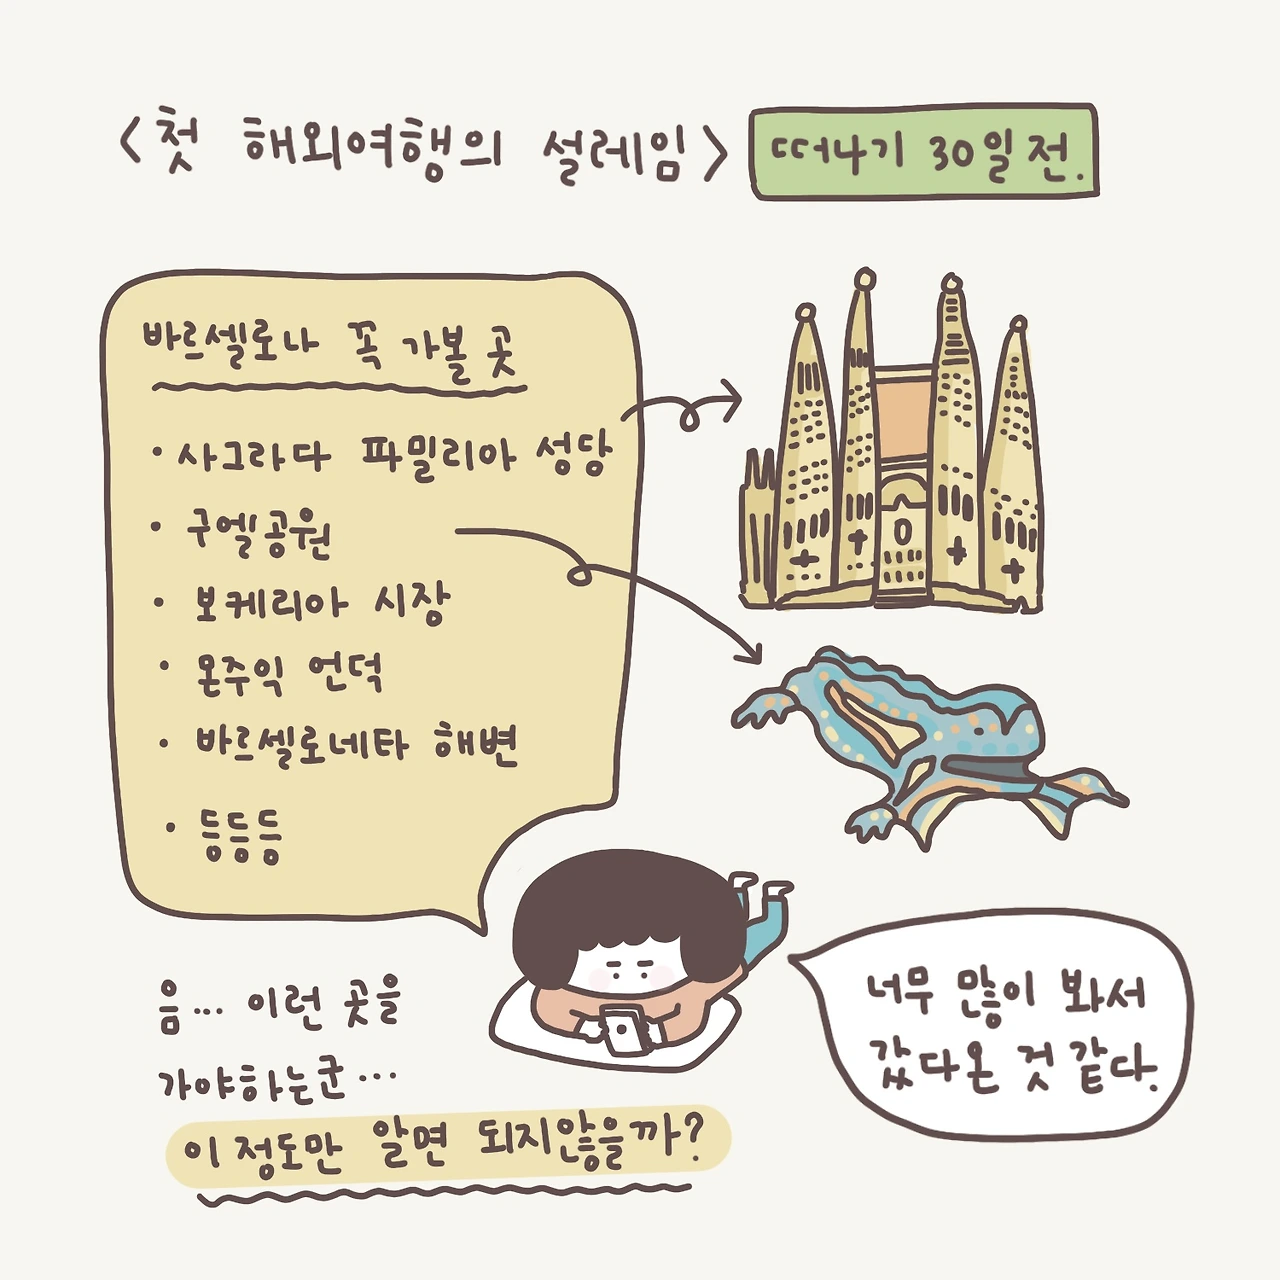 <첫 해외여행의 설레임>
떠나기 30일 전.
바르셀로나 꼭 가볼 곳
· 사그라다 파밀리아 성당
· 구엘공원
· 보케리아 시장
· 몬주익 언덕
· 바르셀로네타 해변
· 등등등
음... 이런 곳을
가야하는군...
이 정도만 알면 되지않을까?
너무 많이 봐서
갔다온 것 같다.